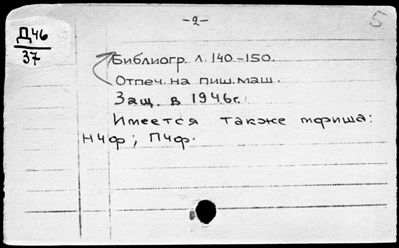 -2-
5
Д46
37
Библиогр. л. 140-150.
Отпеч. на пиш. маш.
Защ. в 1946г.
Имеется также мфиша:
НЧф; ПЧф.